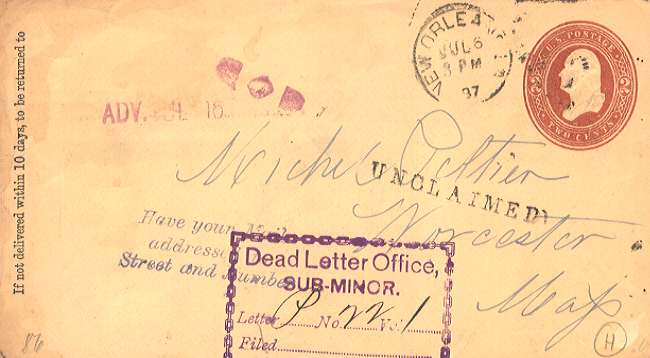 If not delivered within 10 days, to be returned to
NEW ORLEA
JUL 6
3 PM
87
U.S. POSTAGE
TWO CENTS
2
2
ADV. JUL 16
Michel Peltier
UNCLAIMED
Worcester
Mass
Have your
addresse
Street and Number
Dead Letter Office,
SUB-MINOR.
Letter P No. 22 V. 1
Filed
86
H